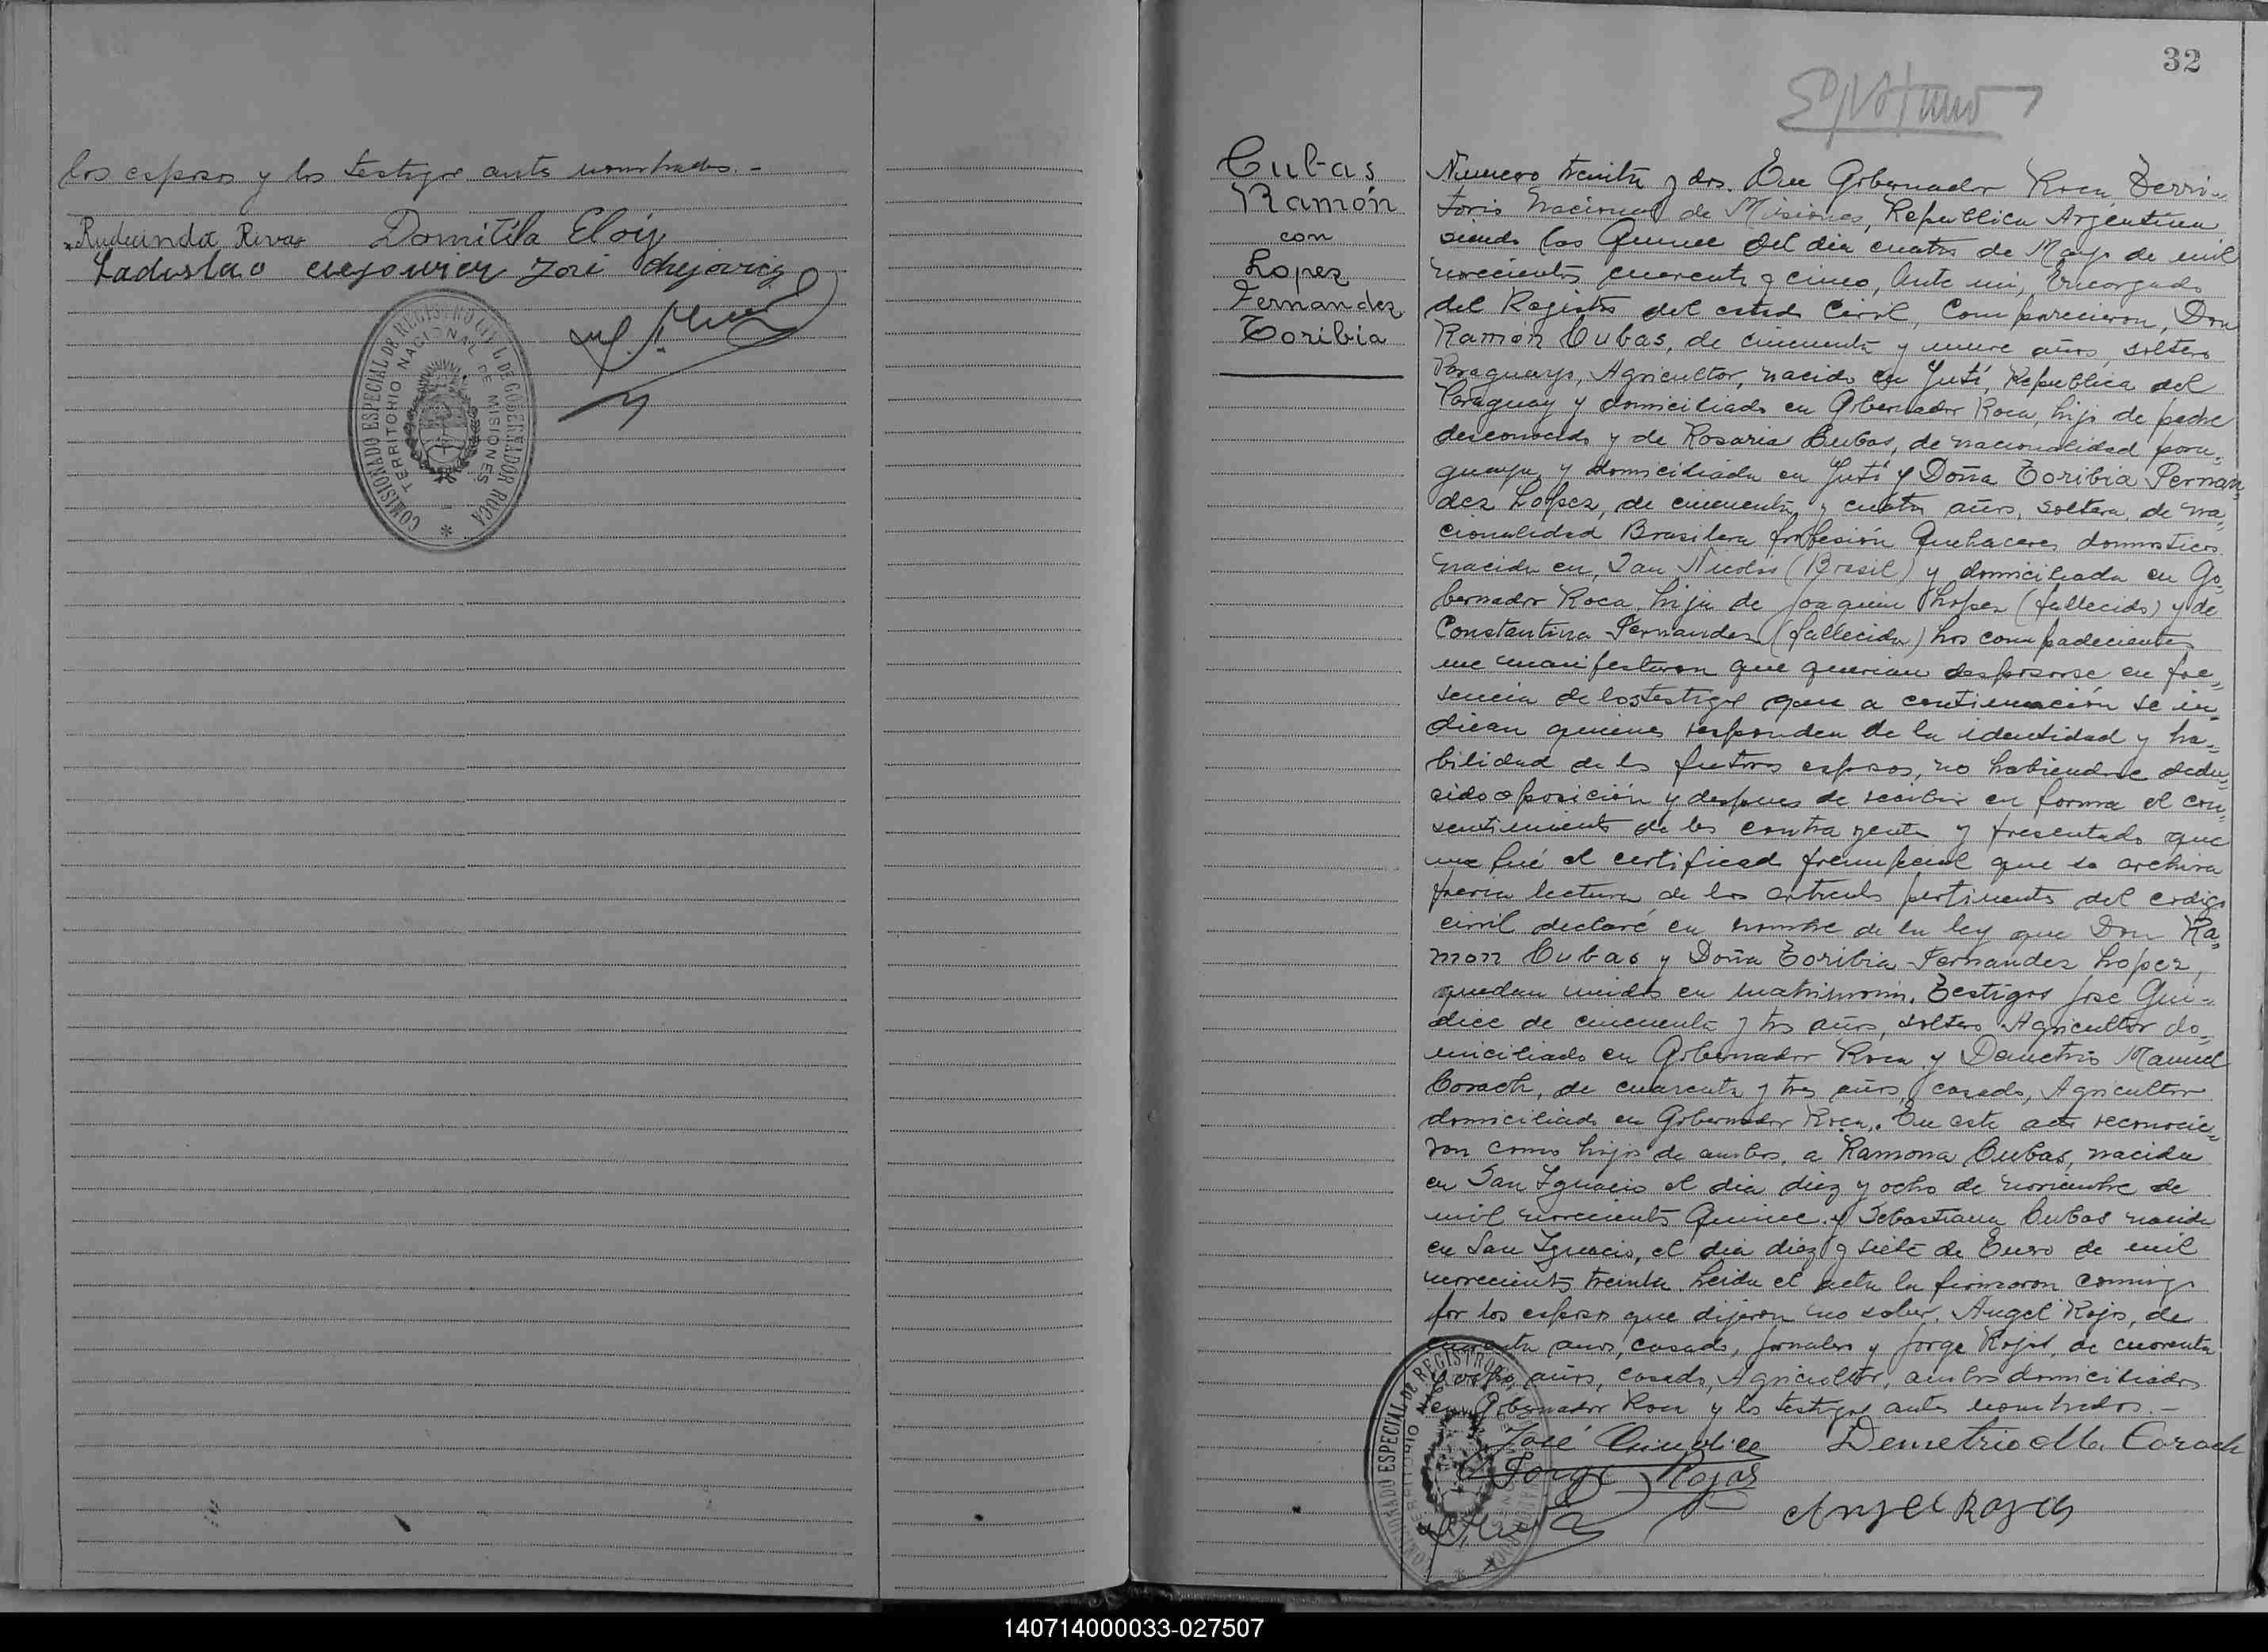 los esposos y los testigos antes nombrados.-
Rudecinda Rivas Domitila Eloy
Ladislao José
COMISIONADO ESPECIAL DE REGISTRO CIVIL DE GOBERNADOR ROCA
TERRITORIO NACIONAL DE MISIONES
32
Cubas
Ramón
con
Lopez
Fernandez
Toribia
Numero treinta y dos. En Gobernador Roca Terri-
torio Nacional de Misiones, Republica Argentina
siendo las Quince del dia cuatro de Mayo de mil
novecientos cuarenta y cinco, Ante mi, Encargado
del Registro del estado Civil, Comparecieron, Don
Ramón Cubas, de cincuenta y nueve años, soltero
Paraguayo, Agricultor, nacido en Yutí, Republica del
Paraguay y domiciliado en Gobernador Roca, hijo de padre
desconocido y de Rosaria Cubas, de nacionalidad para-
guaya y domiciliada en Yutí y Doña Toribia Fernan-
dez Lopez, de cincuenta y cuatro años, soltera, de na-
cionalidad Brasilera profesión Quehaceres domosticos
nacida en, San Nicolás (Brasil) y domiciliada en Go-
bernador Roca, hija de Joaquin Lopez (fallecido) y de
Constantina Fernandez (fallecida) Los compadecientes
me manifestaron que querian desposarse en pre-
sencia de los testigos que a continuación se in-
dican quienes responden de la identidad y ha-
bilidad de los futuros esposos, no habiendose dedu-
cido oposición y despues de recibir en forma el con-
sentimiento de los contrayentes y presentado que
me fué el certificado prenupcial que se archiva
previa lectura de los articulos pertinentes del codigo
civil declaré en nombre de la ley que Don Ra-
mon Cubas y Doña Toribia Fernandez Lopez,
quedan unidos en matrimonio. Testigos José Giu-
dice de cincuenta y tres años, soltero Agricultor do-
miciliado en Gobernador Roca y Demetrio Manuel
Corach, de cuarenta y tres años, casado, Agricultor
domiciliado en Gobernador Roca. En este acto reconocie-
ron como hijos de ambos, a Ramona Cubas, nacida
en San Ignacio el dia diez y ocho de noviembre de
mil novecientos Quince y Sebastiana Cubas nacida
en San Ignacio, el dia diez y siete de Enero de mil
novecientos treinta. Leida el acta la firmaron conmigo
por los esposos que dijeron no saber. Angel Rojo, de
años, casado, jornalero y Jorge Rojas, de cuarenta
y ocho años, casado, Agricultor, ambos domiciliados
en Gobernador Roca y los testigos antes nombrados.-
José Giudice Demetrio M. Corach
Jorge Rojas
Angel Rojas
COMISIONADO ESPECIAL DE REGISTRO
TERRITORIO
140714000033-027507